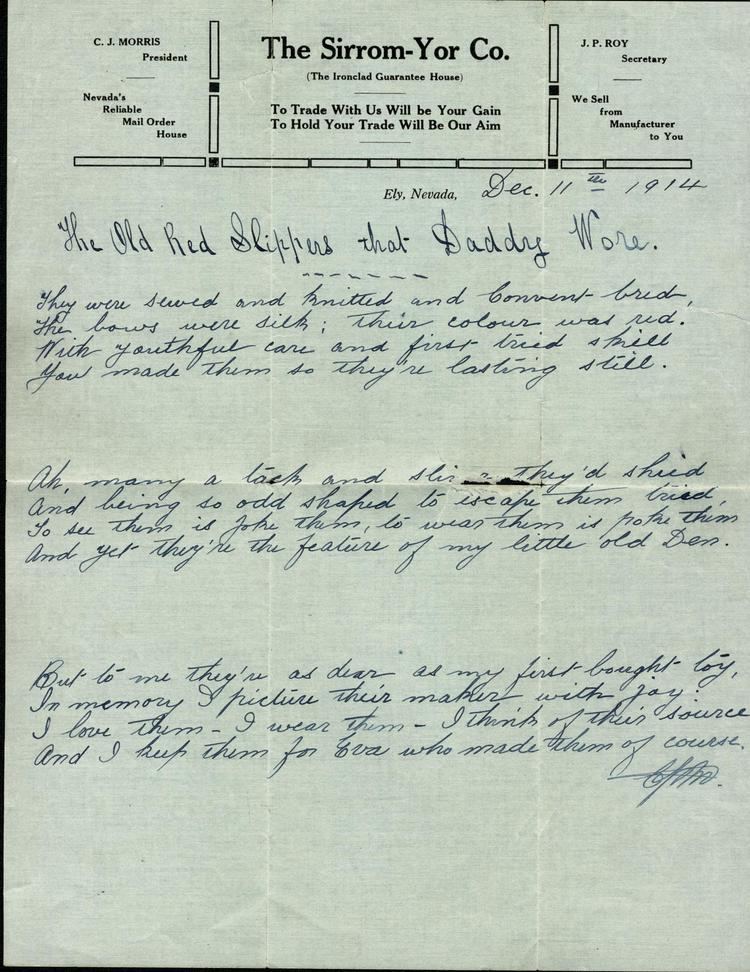 C. J. MORRIS
President
Nevada's
Reliable
Mail Order
House
The Sirrom-Yor Co.
(The Ironclad Guarantee House)
To Trade With Us Will be Your Gain
To Hold Your Trade Will Be Our Aim
J. P. ROY
Secretary
We Sell
from
Manufacturer
to You
Ely, Nevada, Dec. 11th 1914
The Old Red Slippers that Daddy Wore.
They were sewed and knitted and Convent bred,
The bows were silk; their colour was red.
With youthful care and first tried skill
You made them so they're lasting still.
Ah, many a tack and they'd shied
And being so odd shaped to escape them tried,
To see them is joke them, to wear them is poke them
And yet they're the feature of my little old Den.
But to me they're as dear as my first bought toy,
In memory I picture their maker with joy:
I love them - I wear them - I think of their source
And I keep them for Eva who made them of course.
CJM.